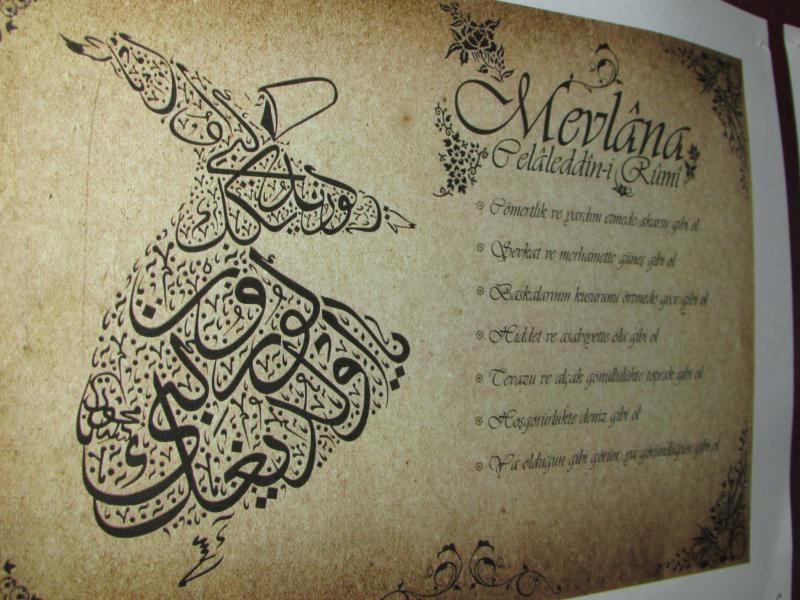 Mevlâna
Celâleddîn-i Rûmî
Cömertlik ve yardım etmede akarsu gibi ol
Şevkat ve merhamette güneş gibi ol
Başkalarının kusurunu örtmede gece gibi ol
Hiddet ve asabiyette ölü gibi ol
Tevazu ve alçak gönüllülükte toprak gibi ol
Hoşgörürlükte deniz gibi ol
Ya olduğun gibi görün, ya göründüğün gibi ol